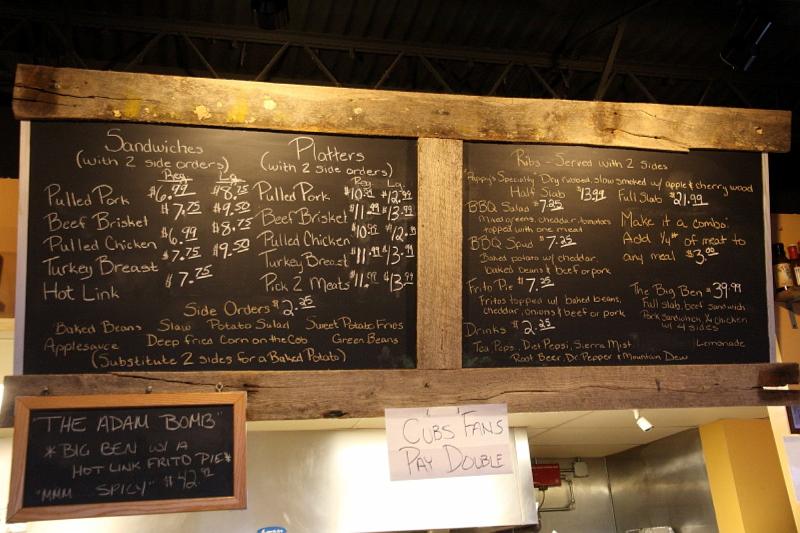 Sandwiches
(with 2 side orders)
Reg. Lg.
Pulled Pork $6.99 $8.75
Beef Brisket $7.75 $9.50
Pulled Chicken $6.99 $8.75
Turkey Breast $7.75 $9.50
Hot Link $7.75
Platters
(with 2 side orders)
Reg. Lg.
Pulled Pork $10.99 $12.99
Beef Brisket $11.99 $13.99
Pulled Chicken $10.99 $12.99
Turkey Breast $11.99 $13.99
Pick 2 Meats $11.99 $13.99
Side Orders $2.25
Baked Beans Slaw Potato Salad Sweet Potato Fries
Applesauce Deep fried Corn on the Cob Green Beans
(Substitute 2 sides for a Baked Potato)
Ribs - Served with 2 Sides
Pappy's Specialty Dry rubbed, slow smoked w/ apple & cherry wood
Half Slab $13.99 Full Slab $21.99
BBQ Salad $7.25
Mixed greens, cheddar, tomatoes
topped with one meat
BBQ Spud $7.25
Baked potato w/ cheddar
baked beans & beef or pork
Frito Pie $7.25
Fritos topped w/ baked beans,
cheddar, onions & beef or pork
Drinks $2.25
Tea, Pepsi, Diet Pepsi, Sierra Mist Lemonade
Root Beer, Dr. Pepper & Mountain Dew
Make it a combo:
Add ¼# of meat to
any meal $3.00
The Big Ben $39.99
Full slab, beef sandwich
Pork sandwich, ¼ chicken
w/ 4 sides
THE ADAM BOMB"
*BIG BEN W/ A
HOT LINK FRITO PIE*
"MMM SPICY"
CUBS FANS
PAY DOUBLE